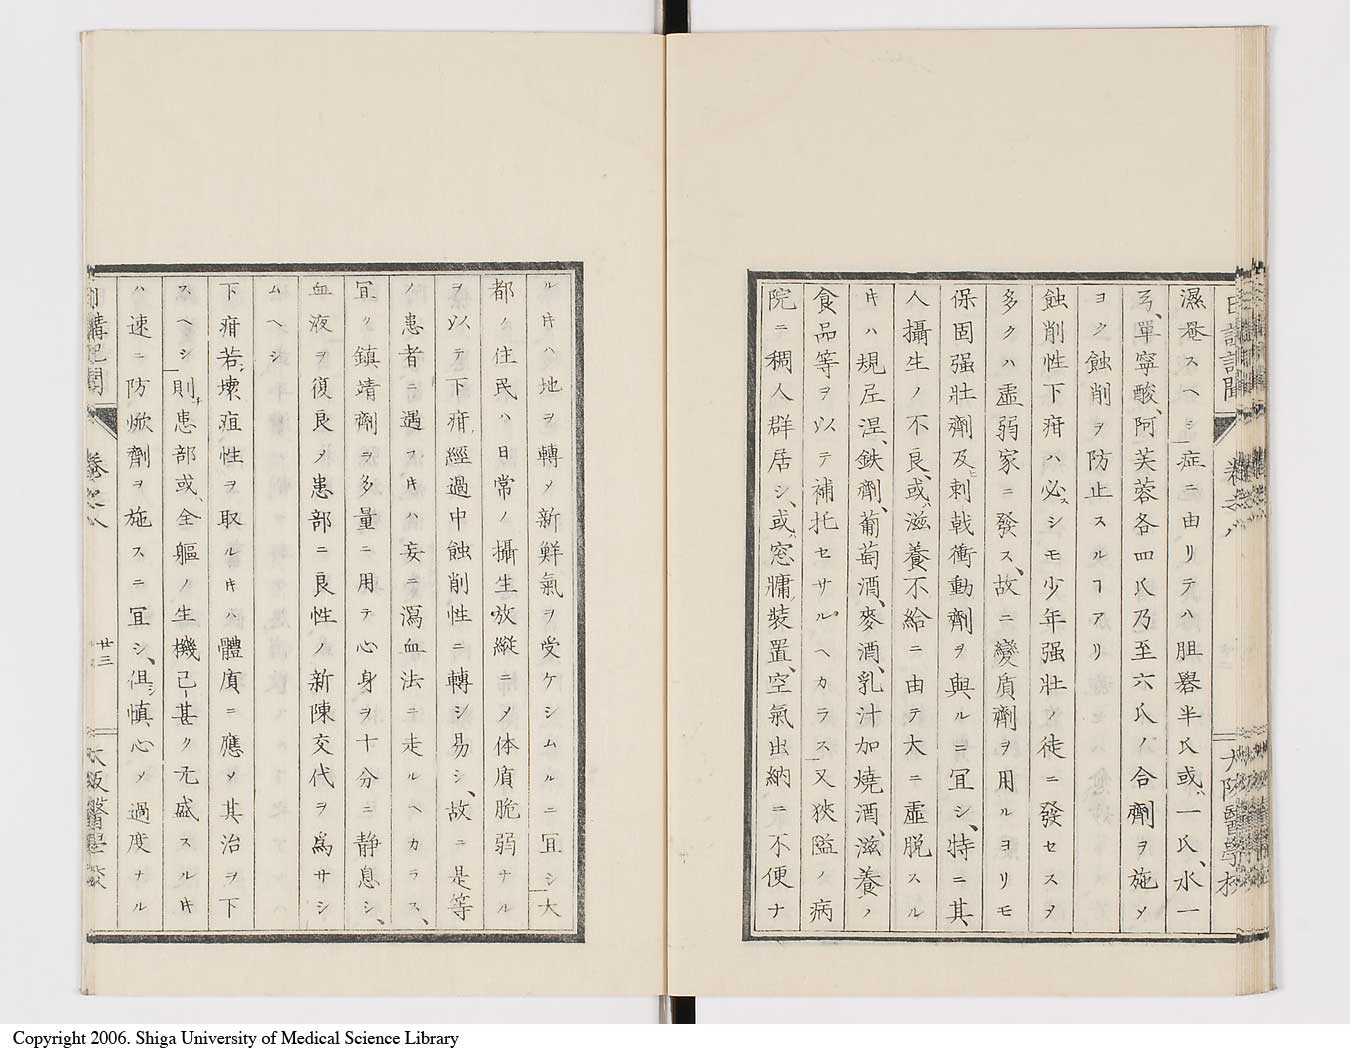 濕罨スヘシ症ニ由リテハ胆礬半氏或一氏、水一
弓、單寧酸、阿芙蓉各四氏乃至六氏ノ合劑ヲ施メ
ヨク蝕削ヲ防止スルヿアリ
蝕削性下疳ハ必スシモ少年强壯ノ徒ニ發セスヲ
多クハ虛弱家ニ發ス、故ニ變質劑ヲ用ルヨリモ
保固强壯劑及ヒ刺戟衝動劑ヲ與ルニ冝シ、特ニ其
人攝生ノ不良、或滋養不給ニ由テ大ニ虛脱スル
キハ規尼涅、鉄劑、葡萄酒、麥酒、乳汁加燒酒、滋養ノ
食品等ヲ以テ補托セサルヘカラス又狹隘ノ病
院ニ稠人群居シ、或窓牗裝置、空氣出納ニ不便ナ
ルキハ地ヲ轉メ新鮮氣ヲ受ケシムルニ冝シ大
都ノ住民ハ日常ノ攝生放縱ニメ体質脆弱ナル
ヲ以テ下疳經過中蝕削性ニ轉シ易シ、故ニ是等
ノ患者ニ遇フキハ妄ニ瀉血法ニ走ルヘカラス、
冝ク鎮靖劑ヲ多量ニ用テ心身ヲ十分ニ静息シ、
血液ヲ復良メ患部ニ良性ノ新陳交代ヲ爲サシ
ムヘシ
下疳若壊疽性ヲ取ルキハ體質ニ應メ其治ヲ下
スヘシ則チ患部或全軀ノ生機已ニ甚ク亢盛スルキ
ハ速ニ防焮劑ヲ施スニ冝シ、但シ愼心メ過度ナル
日講記聞
卷之八
廿三
大阪醫學校